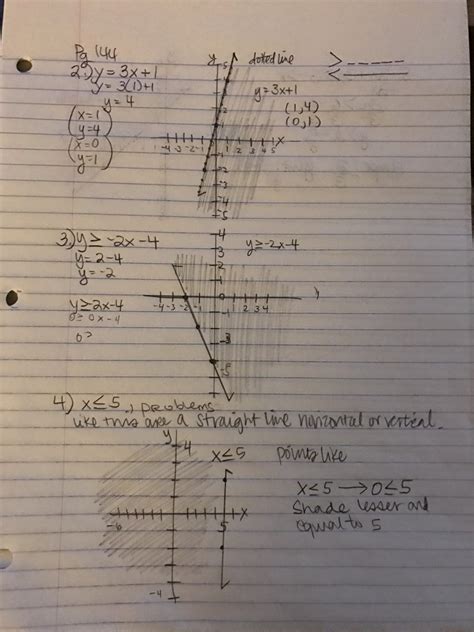 Pg 144
2.) y = 3x+1
y = 3(1)+1
y = 4
(x=1
y=4)
(x=0
y=1)
y
5
dotted line
y = 3x+1
(1,4)
(0,1)
-4 -3 -2 -1 1 2 3 4 5 x
-2
-3
-4
-5
3.) y ≥ -2x-4
y = 2-4
y = -2
y ≥ 2x-4
0 ≥ 0x-4
0 ≥
y ≥ -2x-4
4
3
2
-4 -3 -2 -1 0 1 2 3 4
-1
-3
-5
4) x ≤ 5., problems
like this are a straight line horizontal or vertical.
y
4
x ≤ 5
points like
x ≤ 5 → 0 ≤ 5
Shade lesser and
equal to 5
-6 5 x
-4